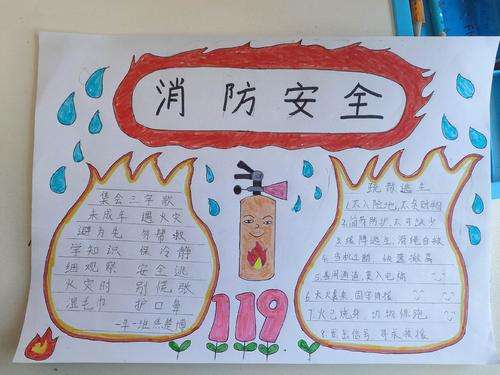 消防安全
集会三字歌
未成年 遇火灾
避为先 勿帮救
学知识 保冷静
细观察 安全逃
火灾时 别慌张
湿毛巾 护口鼻
一年一班
119
逃生
1.不入险地,不贪财物
2.简易防护,不可缺少
3.缓降逃生,滑绳自救
4.当机立断,快速撤离
5.善用通道,莫入电梯
6.大火袭来,固守待援
7.火已烧身,切勿惊跑
8.发出信号,寻求救援